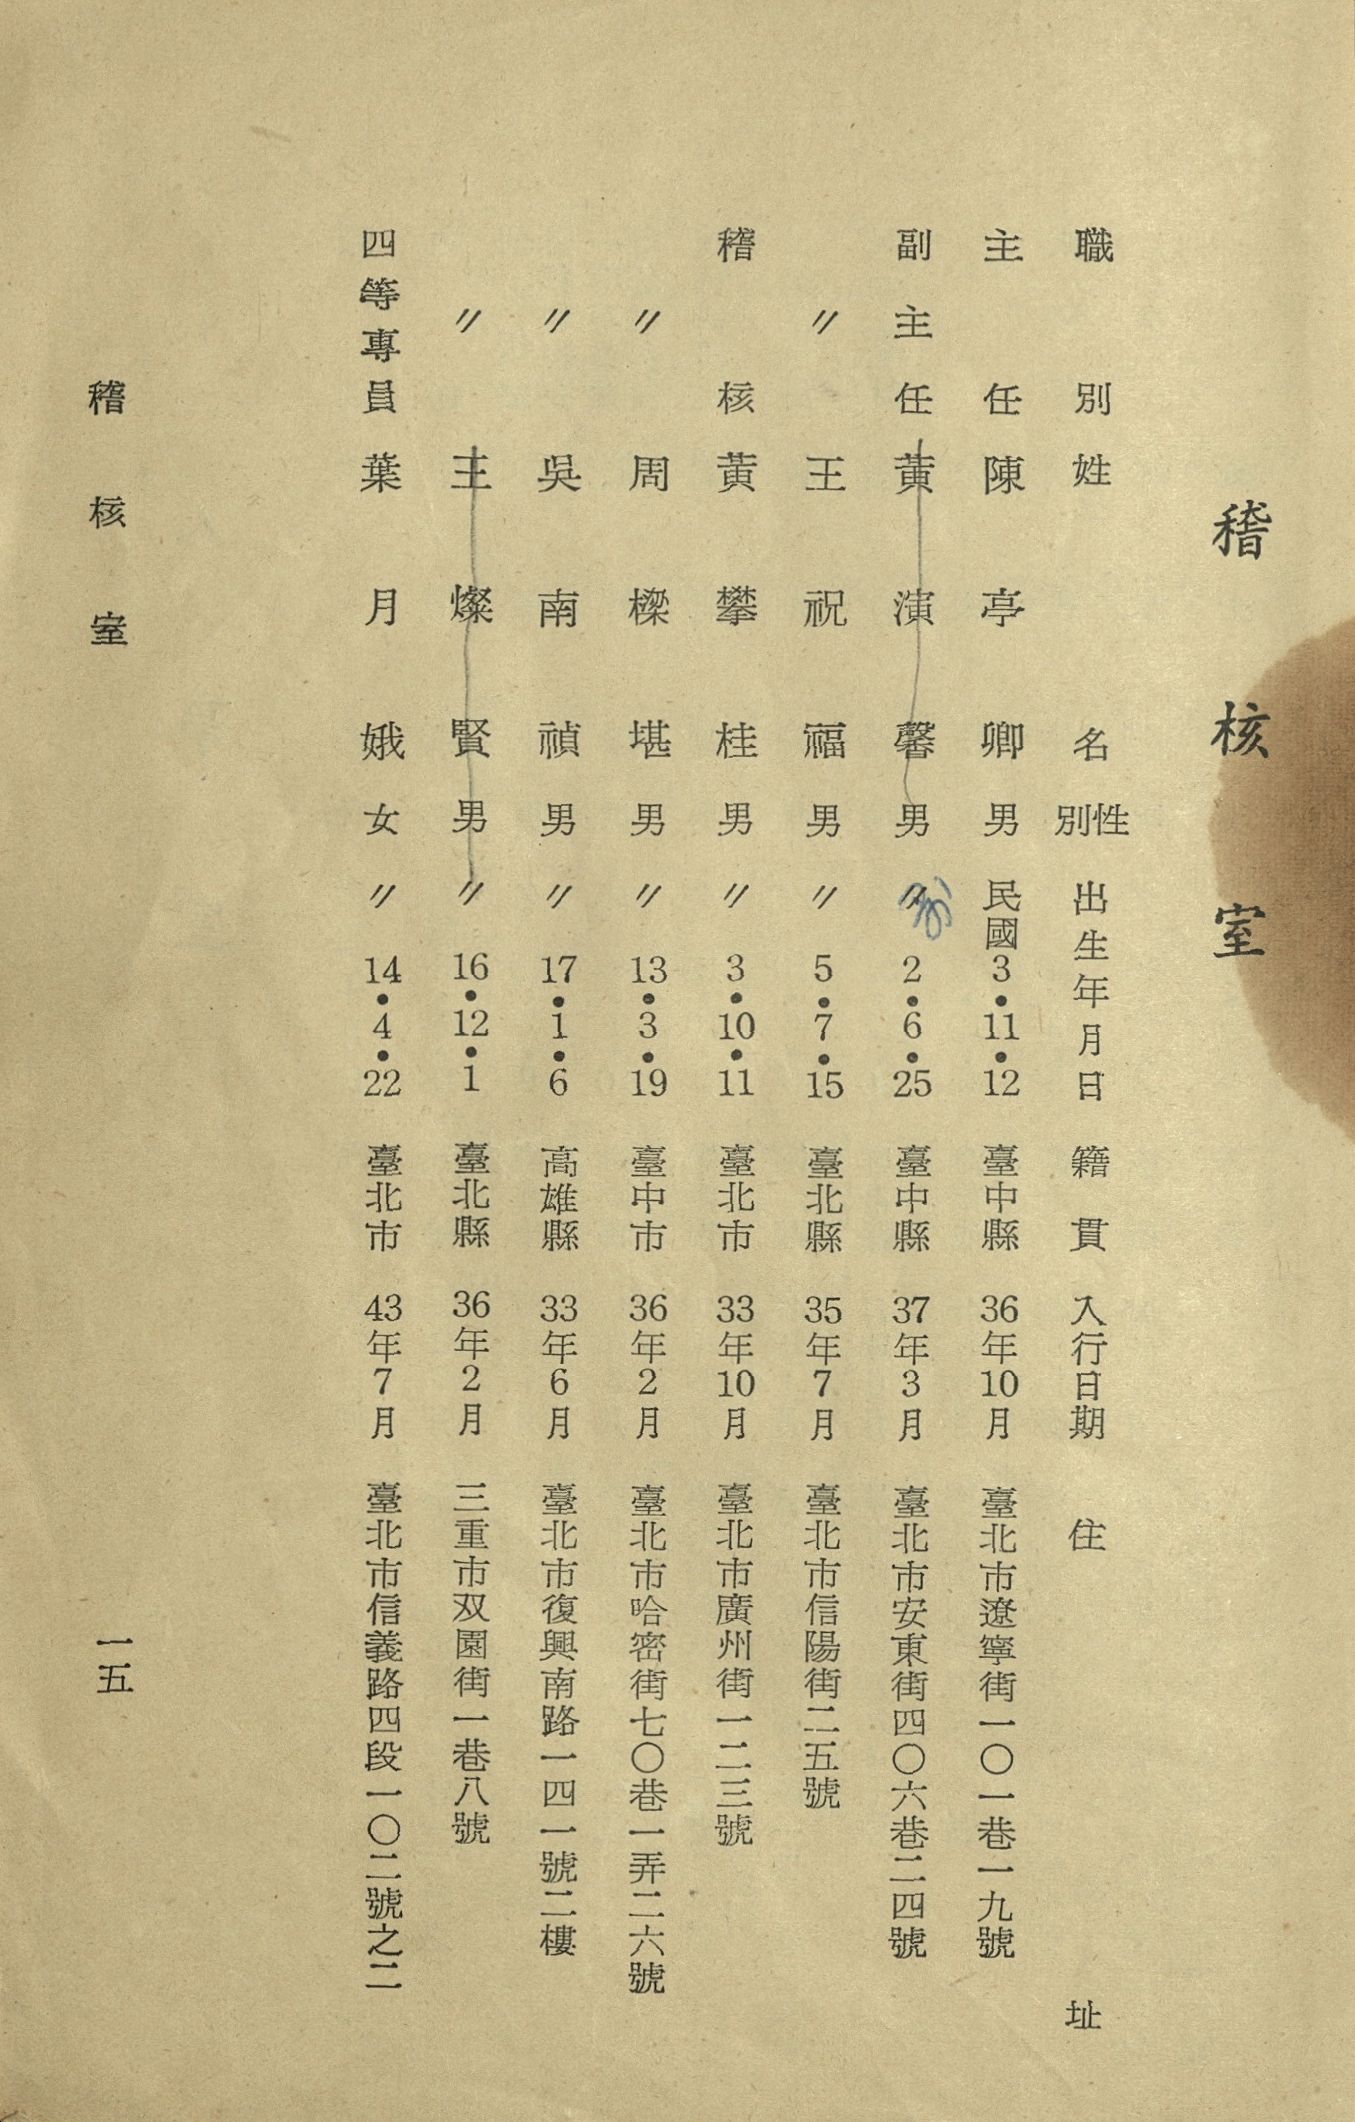 稽核室
職別 姓名 性別 出生年月日 籍貫 入行日期 住址
主任 陳亭卿 男 民國3•11•12 臺中縣 36年10月 臺北市遼寧街一〇一巷一九號
副主任 黃演馨 男 〃2•6•25 臺中縣 37年3月 臺北市安東街四〇六巷二四號
〃 王祝福 男 〃5•7•15 臺北縣 35年7月 臺北市信陽街二五號
稽核 黃攀桂 男 〃3•10•11 臺北市 33年10月 臺北市廣州街一二三號
〃 周樑堪 男 〃13•3•19 臺中市 36年2月 臺北市哈密街七〇巷一弄二六號
〃 吳南禎 男 〃17•1•6 高雄縣 33年6月 臺北市復興南路一四一號二樓
〃 王燦賢 男 〃16•12•1 臺北縣 36年2月 三重市双園街一巷八號
四等專員 葉月娥 女 〃14•4•22 臺北市 43年7月 臺北市信義路四段一〇二號之二
稽核室 一五